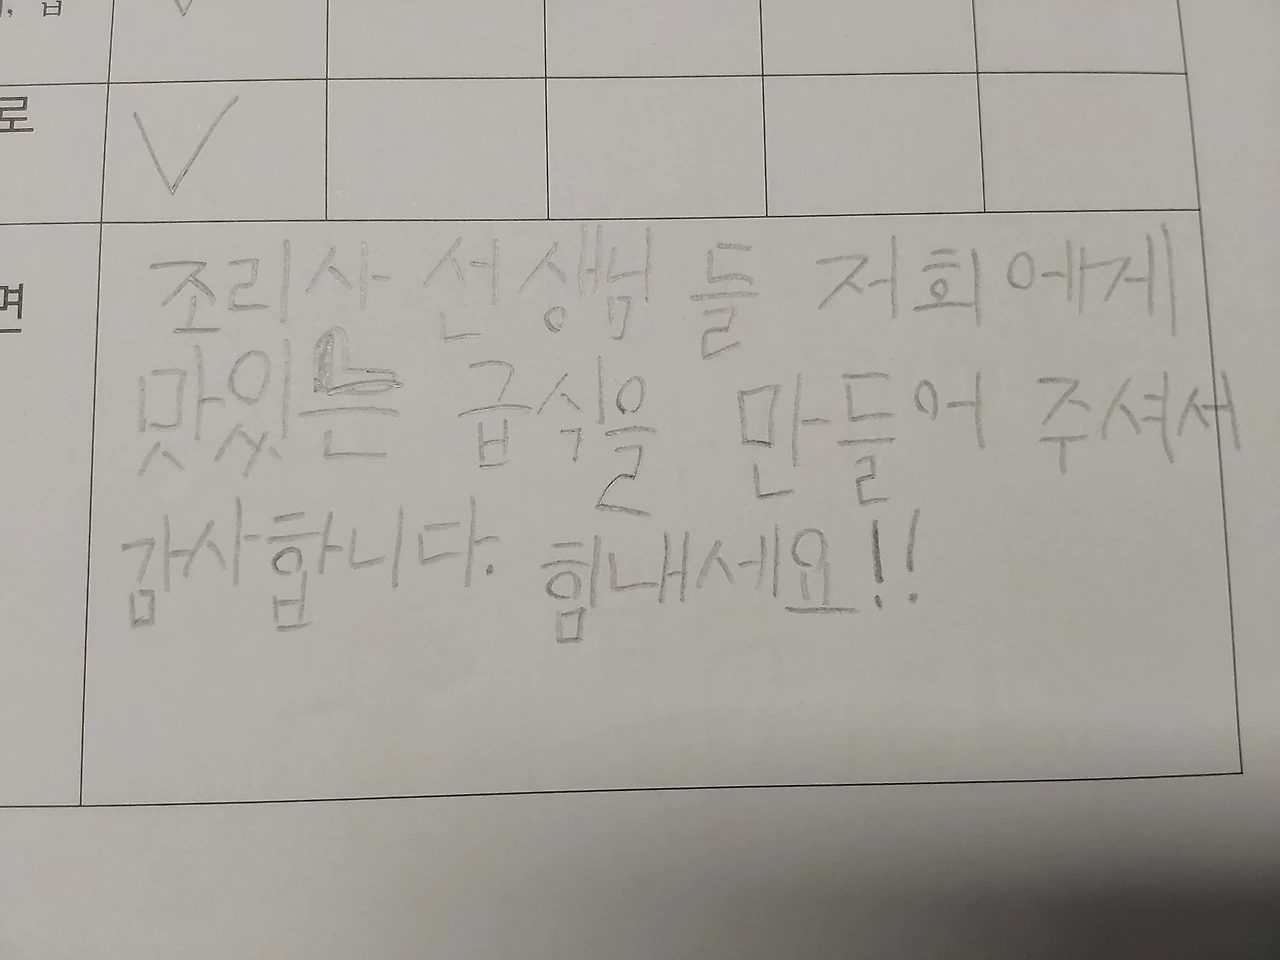 로
면
조리사 선생님들 저희에게
맛있는 급식을 만들어 주셔서
감사합니다. 힘내세요!!